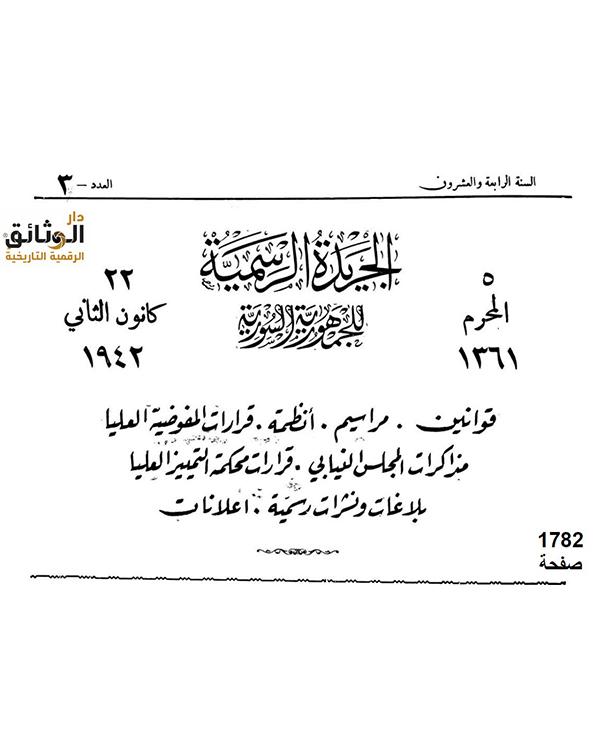 السنة الرابعة والعشرون
العدد – ٣
دار
الوثائق
الرقمية التاريخية
الجريدة الرسمية
للجمهورية السورية
٥
المحرم
١٣٦١
٢٢
كانون الثاني
١٩٤٢
قوانين . مراسيم . أنظمة . قرارات المفوضية العليا
مذاكرات المجلس النيابي . قرارات محكمة التمييز العليا
بلاغات ونشرات رسمية . اعلانات
1782
صفحة